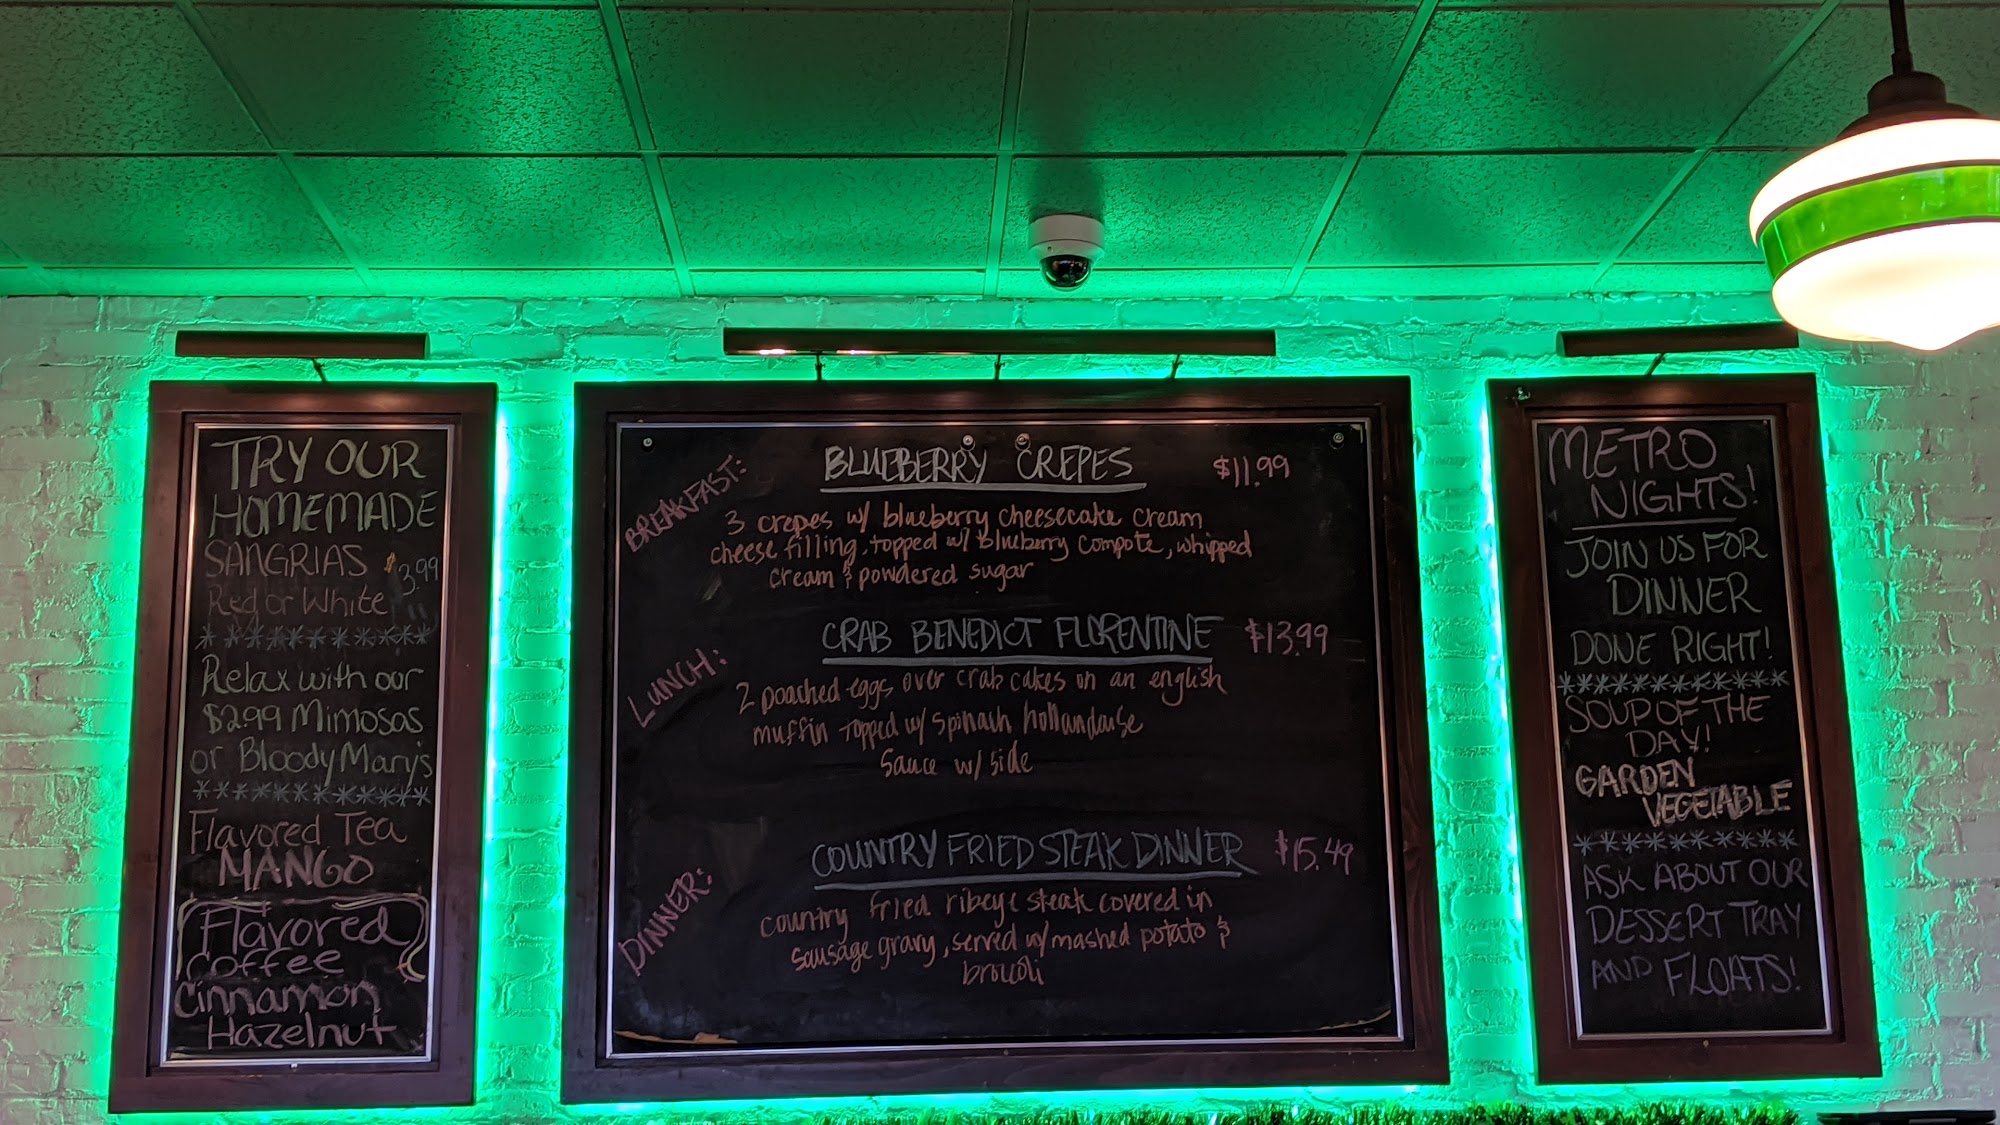 TRY OUR
HOMEMADE
SANGRIAS $3.99
Red or White
***********
Relax with our
$2.99 Mimosas
or Bloody Mary's
************
Flavored Tea
MANGO
Flavored
Coffee
Cinnamon
Hazelnut
BREAKFAST:
BLUEBERRY CREPES $11.99
3 crepes w/ blueberry cheesecake cream
cheese filling, topped w/ blueberry compote, whipped
cream & powdered sugar
LUNCH:
CRAB BENEDICT FLORENTINE $13.99
2 poached eggs over crab cakes on an english
muffin topped w/ spinach hollandause
sauce w/ side
DINNER:
COUNTRY FRIED STEAK DINNER $15.49
country fried ribeye steak covered in
sausage gravy, served w/ mashed potato &
brocoli
METRO
NIGHTS!
JOIN US FOR
DINNER
DONE RIGHT!
************
SOUP OF THE
DAY!
GARDEN
VEGETABLE
************
ASK ABOUT OUR
DESSERT TRAY
AND FLOATS!